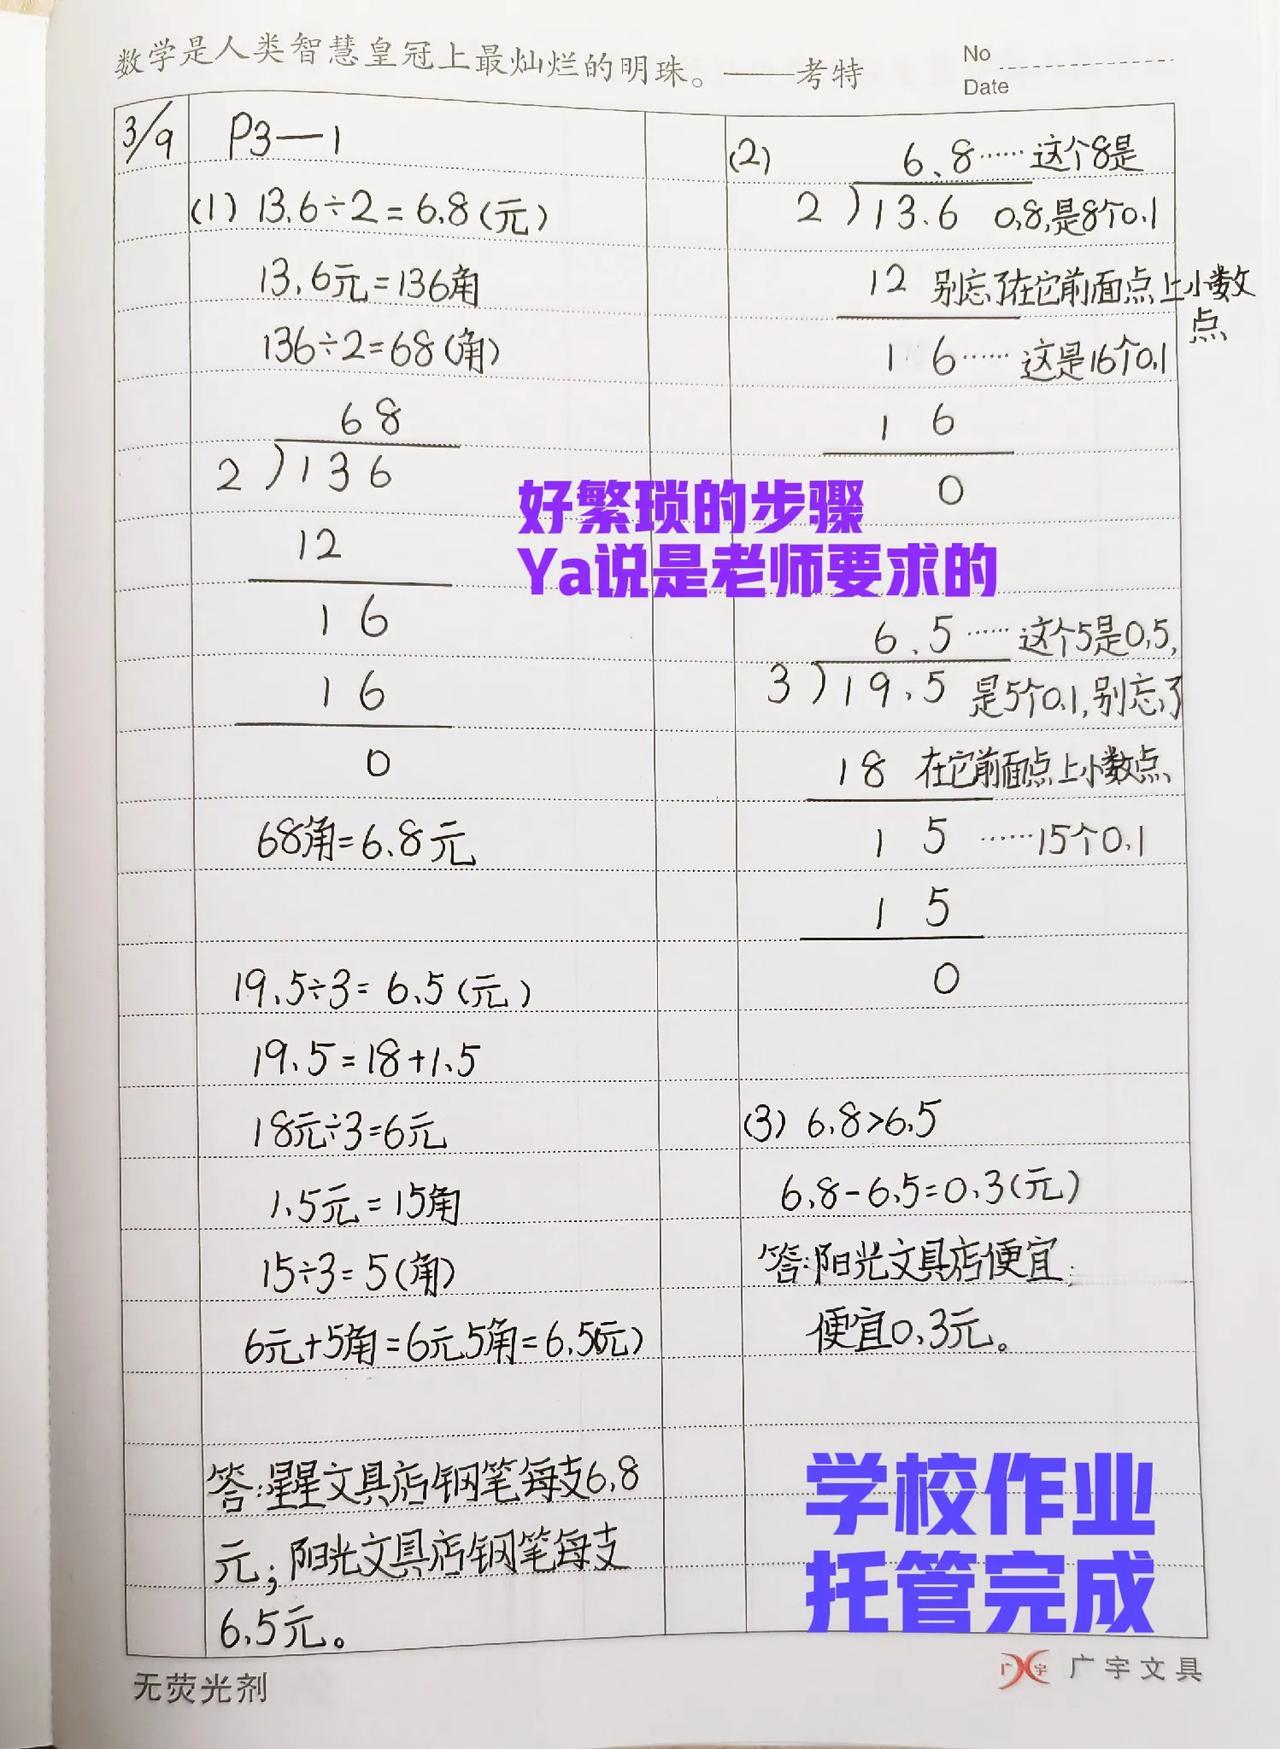 数学是人类智慧皇冠上最灿烂的明珠。——考特
No
Date
3/9
P3—1
(1) 13.6÷2=6.8(元)
13.6元=136角
136÷2=68(角)
68
2)136
12
16
16
0
68角=6.8元
19.5÷3=6.5(元)
19.5=18+1.5
18元÷3=6元
1.5元=15角
15÷3=5(角)
6元+5角=6元5角=6.5(元)
答:星星文具店钢笔每支6.8
元;阳光文具店钢笔每支
6.5元。
(2)
6.8……这个8是
2)13.6 0.8,是8个0.1
12 别忘了在它前面点上小数
点
16……这是16个0.1
16
0
6.5……这个5是0.5,
3)19.5 是5个0.1,别忘了
18 在它前面点上小数点
15……15个0.1
15
0
(3) 6.8>6.5
6.8-6.5=0.3(元)
答:阳光文具店便宜
便宜0.3元。
好繁琐的步骤
Ya说是老师要求的
学校作业
托管完成
无荧光剂
广宇
广宇文具